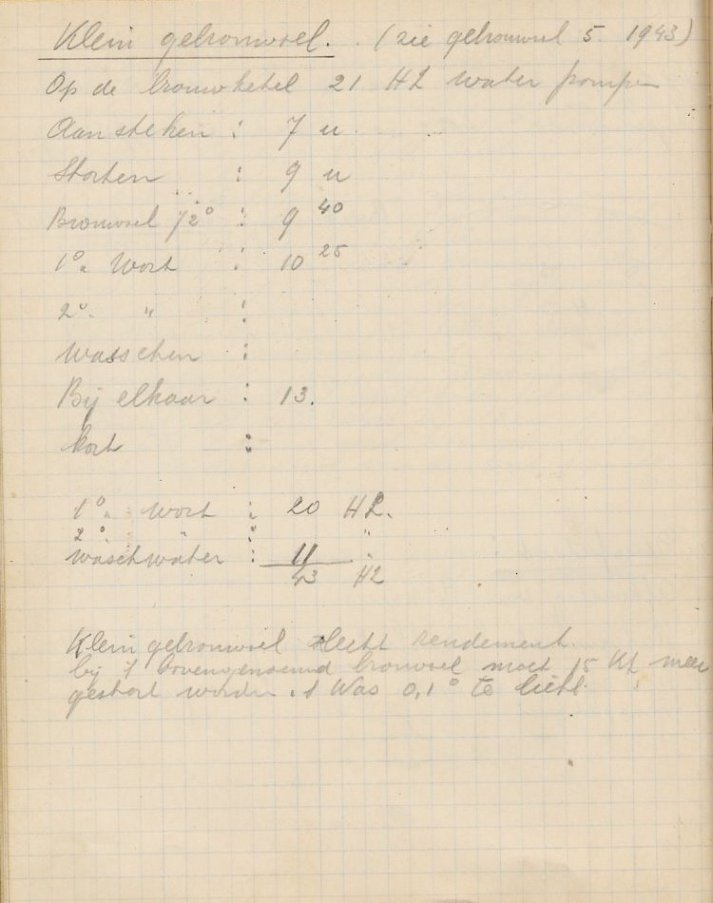 Klein gebrouwsel. (zie gebrouwsel 5. 1943)
Op de brouwketel 21 HL water pompen
Aansteken : 7 u.
Storten : 9 u
Brouwsel 72° : 9 40
1e. Wort : 10 25
2e. " :
Wasschen :
Bij elkaar : 13.
kort :
1e. wort : 20 HL.
2e. " : "
waschwater : 11 "
43 HL
Klein gebrouwsel slecht rendement.
bij 't bovengenoemd brouwsel moet 15 Kg meer
gestort worden. 't Was 0,1° te licht.